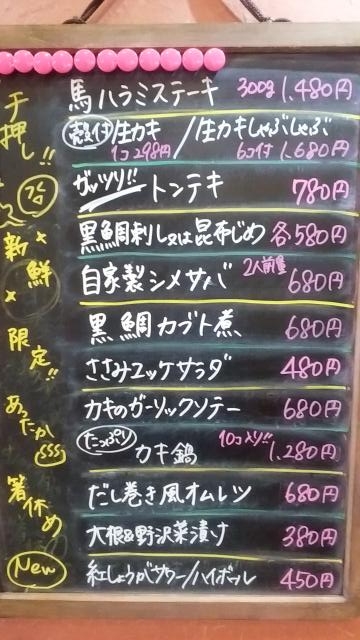 馬ハラミステーキ 300g 1,480円
殻付 生カキ / 生カキしゃぶしゃぶ
1コ 298円 6コ付 1,680円
ガッツリ!! トンテキ 780円
黒鯛刺し又は昆布じめ 各580円
2人前量
自家製シメサバ 680円
黒鯛カブト煮 680円
ささみユッケサラダ 480円
カキのガーリックソテー 680円
たっぷり カキ鍋 10コ入り!! 1,280円
だし巻き風オムレツ 680円
大根&野沢菜漬け 380円
紅しょうがサワー/ハイボール 450円
押し!!
新
鮮
限定!!
あったか
箸休め
New